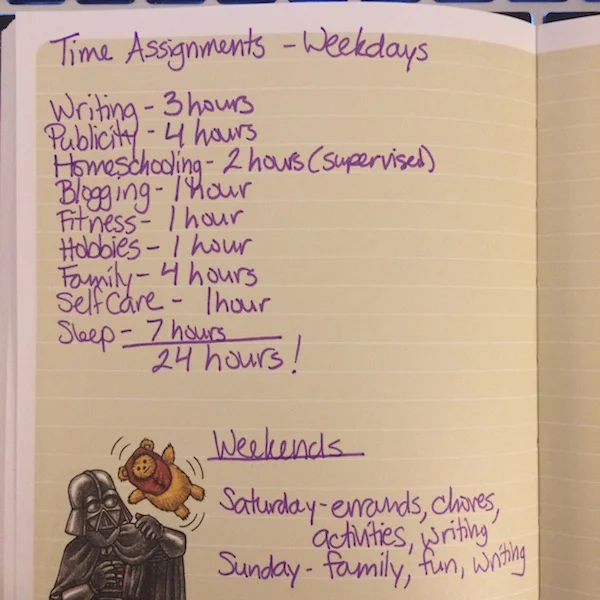 Time Assignments - Weekdays
Writing - 3 hours
Publicity - 4 hours
Homeschooling - 2 hours (supervised)
Blogging - 1 hour
Fitness - 1 hour
Hobbies - 1 hour
Family - 4 hours
Self Care - 1 hour
Sleep - 7 hours
24 hours!
Weekends
Saturday - errands, chores,
activities, writing
Sunday - family, fun, writing